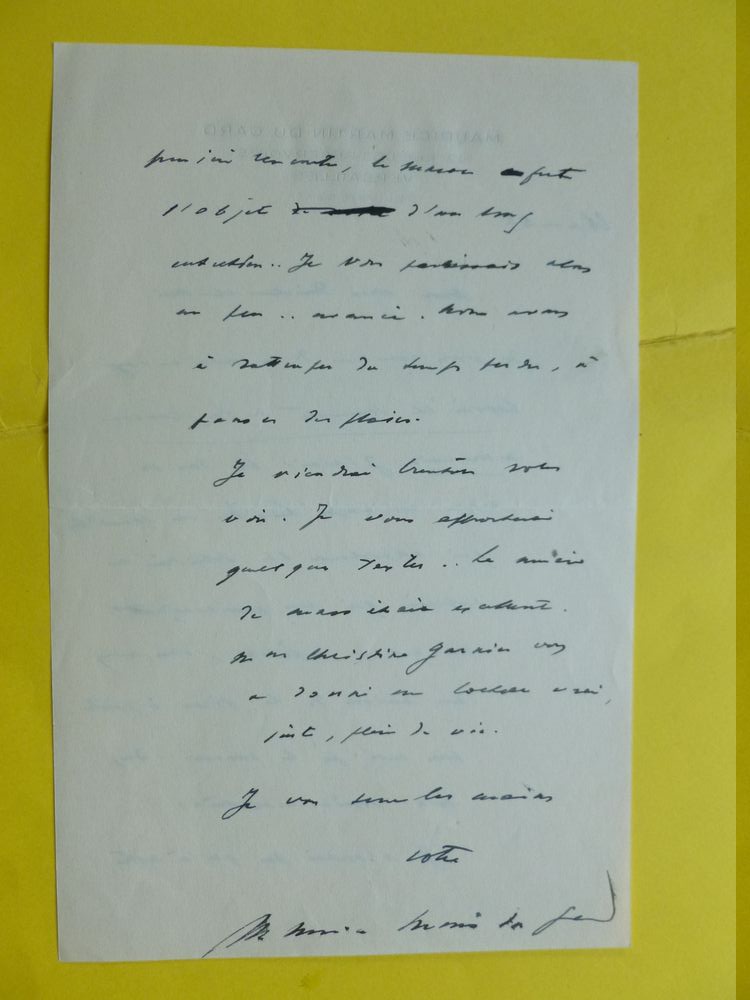 l'objet d'un long
entretien.. Je vous
un peu .. avancé. Nous avons
à rattraper du temps perdu, à
panser des plaies.
Je viendrai bientôt vous
voir. Je vous apporterai
quelques textes .. Le numéro
de mars était excellent.
Christine Garnier vous
a donné un vrai,
juste, plein de vie.
Je vous serre les mains
votre
Maurice Martin du Gard